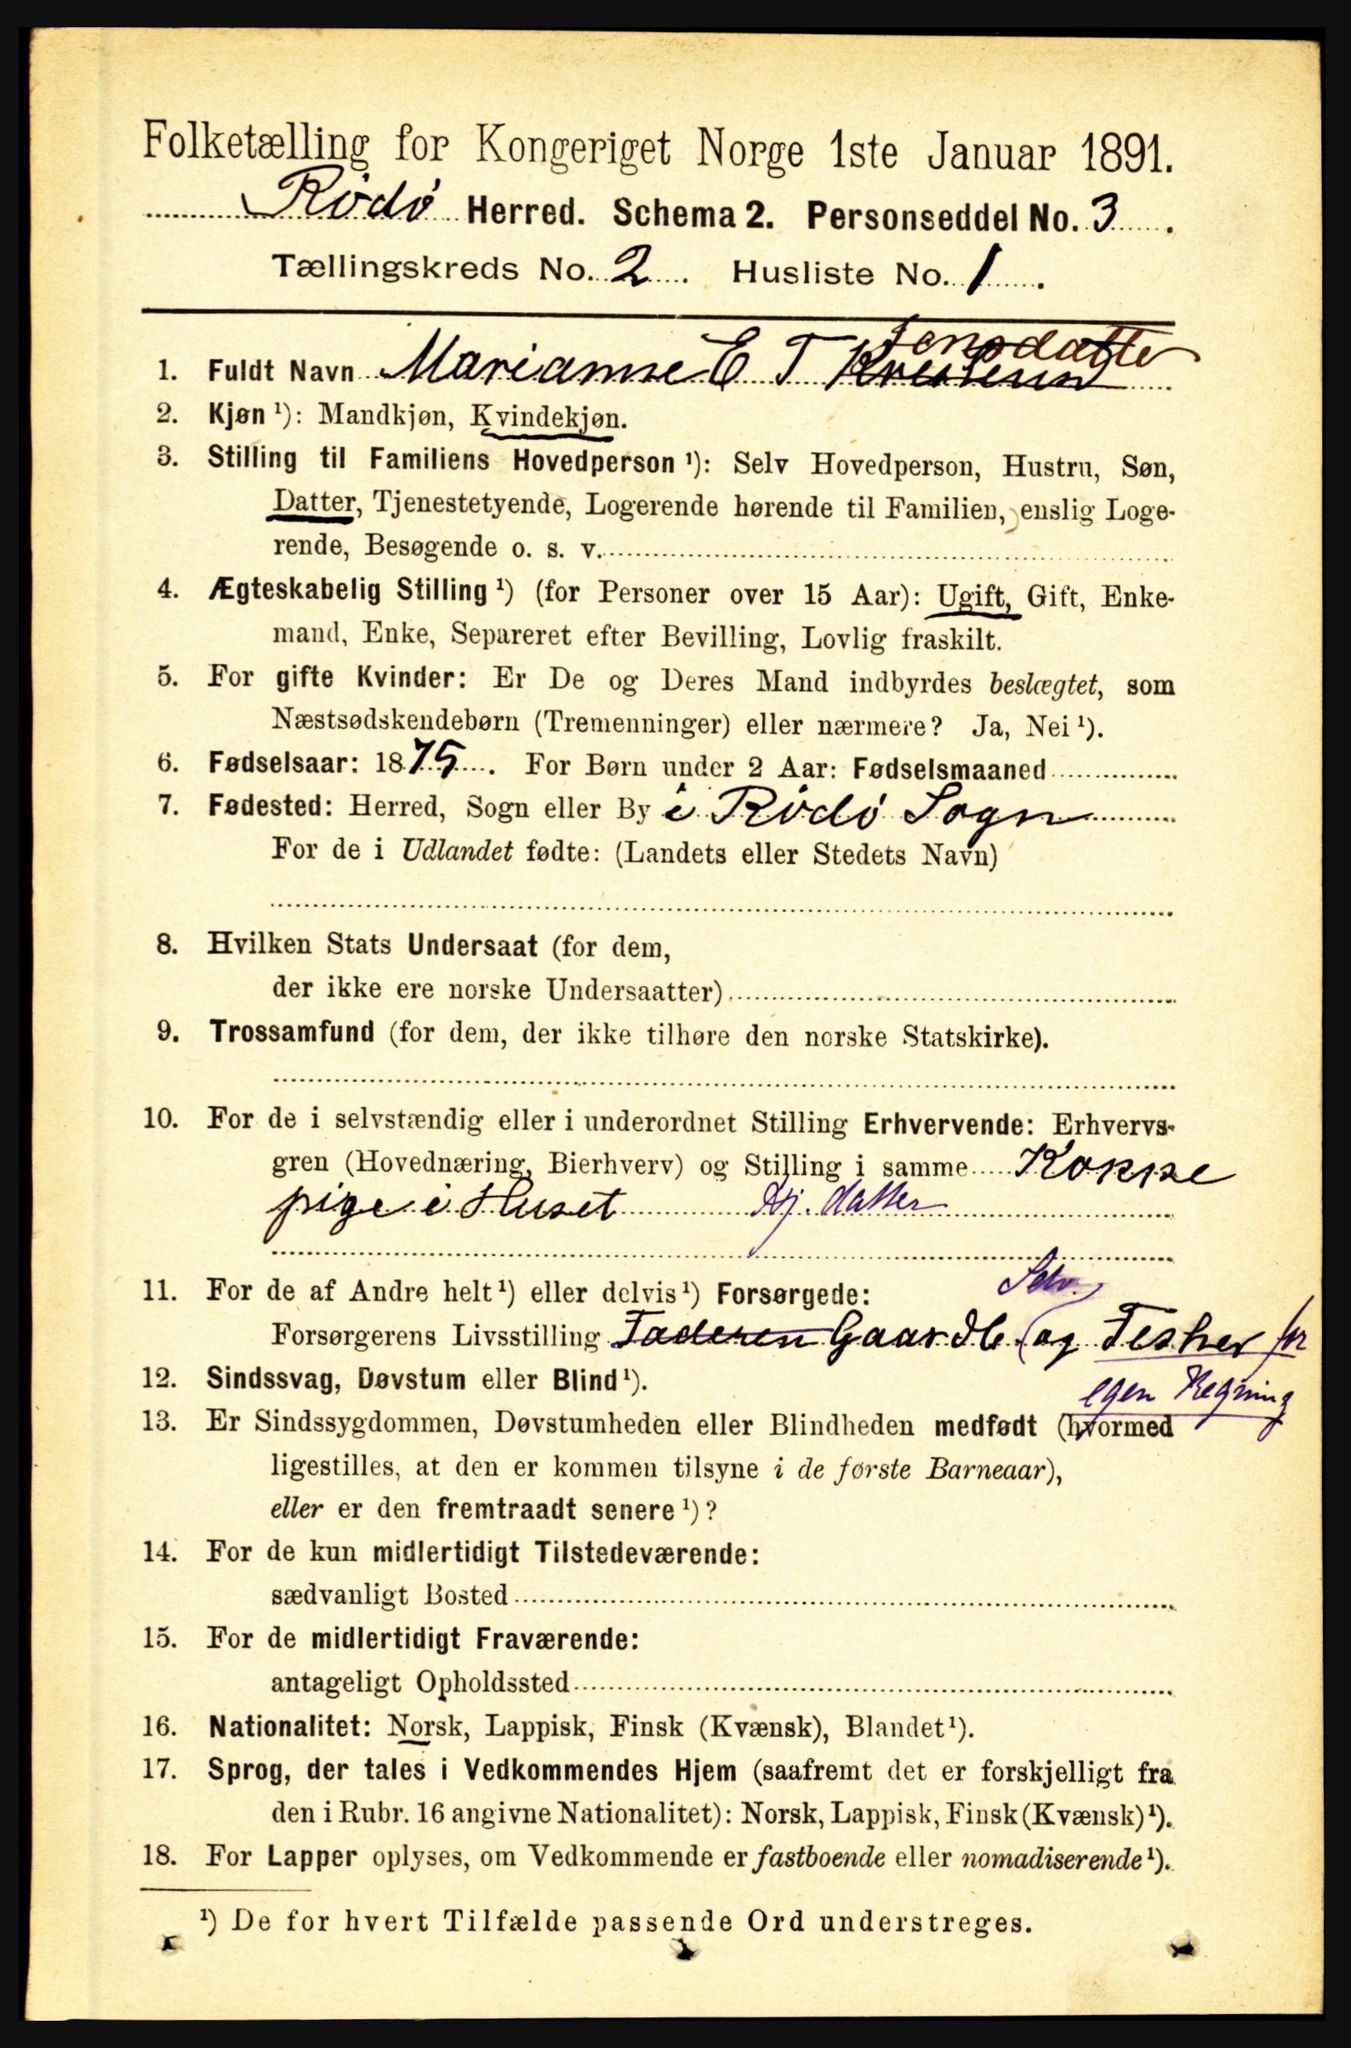 Folketælling for Kongeriget Norge 1ste Januar 1891.
Rödö Herred. Schema 2. Personseddel No. 3.
Tællingskreds No. 2. Husliste No. 1.
Jensdatter
1. Fuldt Navn Marianne E T
2. Kjøn ¹): Mandkjøn, Kvindekjøn.
3. Stilling til Familiens Hovedperson ¹): Selv Hovedperson, Hustru, Søn,
Datter, Tjenestetyende, Logerende hørende til Familien, enslig Loge-
rende, Besøgende o. s. v.
4. Ægteskabelig Stilling ¹) (for Personer over 15 Aar): Ugift, Gift, Enke-
mand, Enke, Separeret efter Bevilling, Lovlig fraskilt.
5. For gifte Kvinder: Er De og Deres Mand indbyrdes beslægtet, som
Næstsødskendebørn (Tremenninger) eller nærmere? Ja, Nei ¹).
6. Fødselsaar: 1875. For Børn under 2 Aar: Fødselsmaaned
7. Fødested: Herred, Sogn eller By i Rödö Sogn
For de i Udlandet fødte: (Landets eller Stedets Navn)
8. Hvilken Stats Undersaat (for dem,
der ikke ere norske Undersaatter)
9. Trossamfund (for dem, der ikke tilhøre den norske Statskirke).
10. For de i selvstændig eller i underordnet Stilling Erhvervende: Erhvervs-
gren (Hovednæring, Bierhverv) og Stilling i samme Kokke
pige i Huset hj. datter
11. For de af Andre helt ¹) eller delvis ¹) Forsørgede: Selv.
Forsørgerens Livsstilling Faderen Gaardb. og Fisker for
egen Regning
12. Sindssvag, Døvstum eller Blind ¹).
13. Er Sindssygdommen, Døvstumheden eller Blindheden medfødt (hvormed
ligestilles, at den er kommen tilsyne i de første Barneaar),
eller er den fremtraadt senere ¹)?
14. For de kun midlertidigt Tilstedeværende:
sædvanligt Bosted
15. For de midlertidigt Fraværende:
antageligt Opholdssted
16. Nationalitet: Norsk, Lappisk, Finsk (Kvænsk), Blandet ¹).
17. Sprog, der tales i Vedkommendes Hjem (saafremt det er forskjelligt fra
den i Rubr. 16 angivne Nationalitet): Norsk, Lappisk, Finsk (Kvænsk) ¹).
18. For Lapper oplyses, om Vedkommende er fastboende eller nomadiserende ¹).
¹) De for hvert Tilfælde passende Ord understreges.